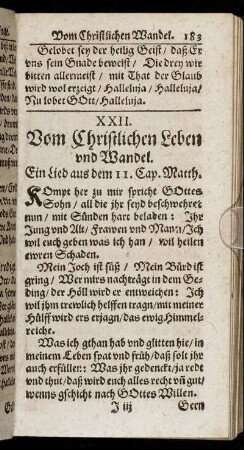 Vom Christlichen Wandel. 183
Gelobet sey der heilig Geist / daß Er
vns sein Gnade beweist / Die drey wir
bitten allermeist / mit That der Glaub
wird wol erzeigt / Halleluja / Halleluja /
Nu lobet GOtt / Halleluja.
XXII.
Vom Christlichen Leben
vnd Wandel.
Ein Lied aus dem 11. Cap. Matth.
KOmpt her zu mir spricht GOttes
Sohn / all die jhr seyd beschwehret
nun / mit Sünden hart beladen : Jhr
Jung vnd Alt / Frawen vnd Mann / Jch
wil euch geben was ich han / wil heilen
ewren Schaden.
Mein Joch ist süß / Mein Bürd ist
gring / Wer mirs nachträgt in dem Ge-
ding / der Höll wird er entweichen : Jch
wil jhm trewlich helffen tragn / mit meiner
Hülff wird ers erjagn / das ewig Himmel-
reiche.
Was ich gthan hab vnd glitten hie / in
meinem Leben spat vnd früh / daß solt jhr
auch erfüllen: Was jhr gedenckt / ja redt
vnd thut / daß wird euch alles recht vñ gut /
wenns gschicht nach GOttes Willen.
J iij Gern